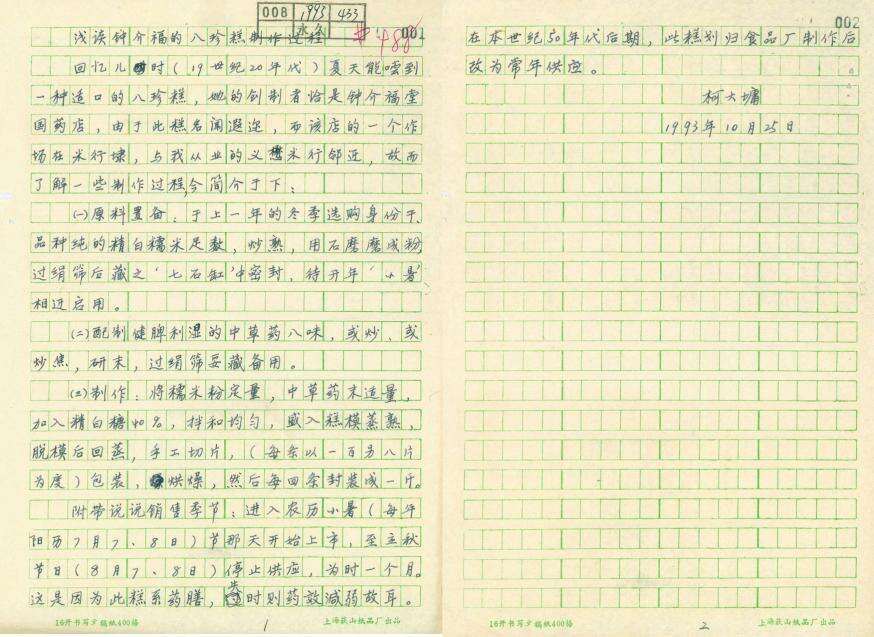 008 1993 433
永久
#488
001
浅谈钟介福的八珍糕制作过程
回忆儿时(19世纪20年代)夏天能尝到
一种适口的八珍糕,她的创制者恰是钟介福堂
国药店,由于此糕名闻遐迩,而该店的一个作
场在米行埭,与我从业的义懋米行邻近,故而
了解一些制作过程,今简介于下:
㈠原料置备:于上一年的冬季选购身份干、
品种纯的精白糯米足数,炒熟,用石磨磨成粉,
过绢筛后藏之"七石缸"中密封,待开年"小暑"
相近启用。
㈡配制健脾利湿的中草药八味,或炒、或
炒焦,研末,过绢筛妥藏备用。
㈢制作:将糯米粉定量,中草药末适量,
加入精白糖40%,拌和均匀,盛入糕模蒸熟,
脱模后回蒸,手工切片,(每条以一百另八片
为度)包装,烘燥,然后每四条封装成一斤。
附带说说销售季节:进入农历小暑(每年
阳历7月7、8日)节那天开始上市,至立秋
节日(8月7、8日)停止供应,为时一个月。
这是因为此糕系药膳,过时则药效减弱故耳。
16开书写夕稿纸400格
1
上海荻山纸品厂出品
002
在本世纪50年代后期,此糕划归食品厂制作后
改为常年供应。
柯大墉
1993年10月25日
16开书写夕稿纸400格
2
上海荻山纸品厂出品